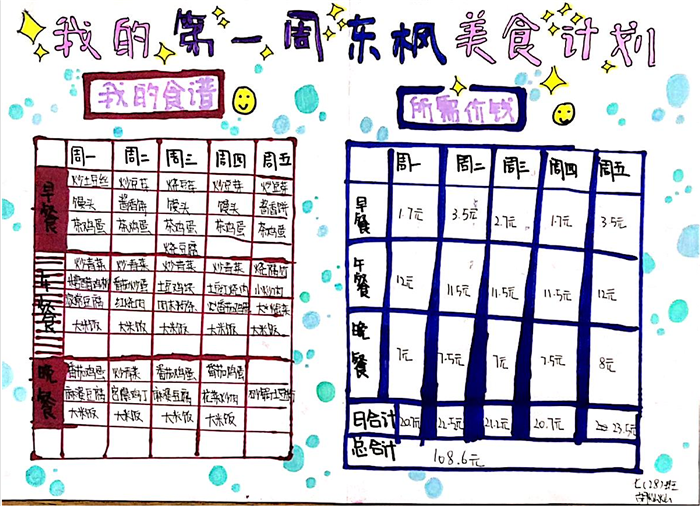 我的第一周东枫美食计划
我的食谱
周一 周二 周三 周四 周五
早餐
炒土豆丝 炒豆芽 烧豆芽 炒豆芽
馒头 酱香饼 馒头 馒头 酱香饼
茶鸡蛋 茶鸡蛋 茶鸡蛋 茶鸡蛋 茶鸡蛋
烧豆腐
午餐
炒青菜 炒青菜 炒青菜 炒青菜
番茄炒蛋 土豆鸡块 小炒肉
红烧肉
大米饭 大米饭 大米饭 大米饭 大米饭
晚餐
番茄鸡蛋 炒青菜 番茄鸡蛋 番茄鸡蛋
麻婆豆腐 宫保鸡丁 麻婆豆腐 花菜炒肉
大米饭 大米饭 大米饭 大米饭
所需价钱
周一 周二 周三 周四 周五
早餐 1.7元 3.5元 2.7元 1.7元 3.5元
午餐 12元 11.5元 11.5元 11.5元 12元
晚餐 7元 7.5元 7元 7.5元 8元
日合计 20.7元 22.5元 21.2元 20.7元 23.5元
总合计 108.6元
七(28)班